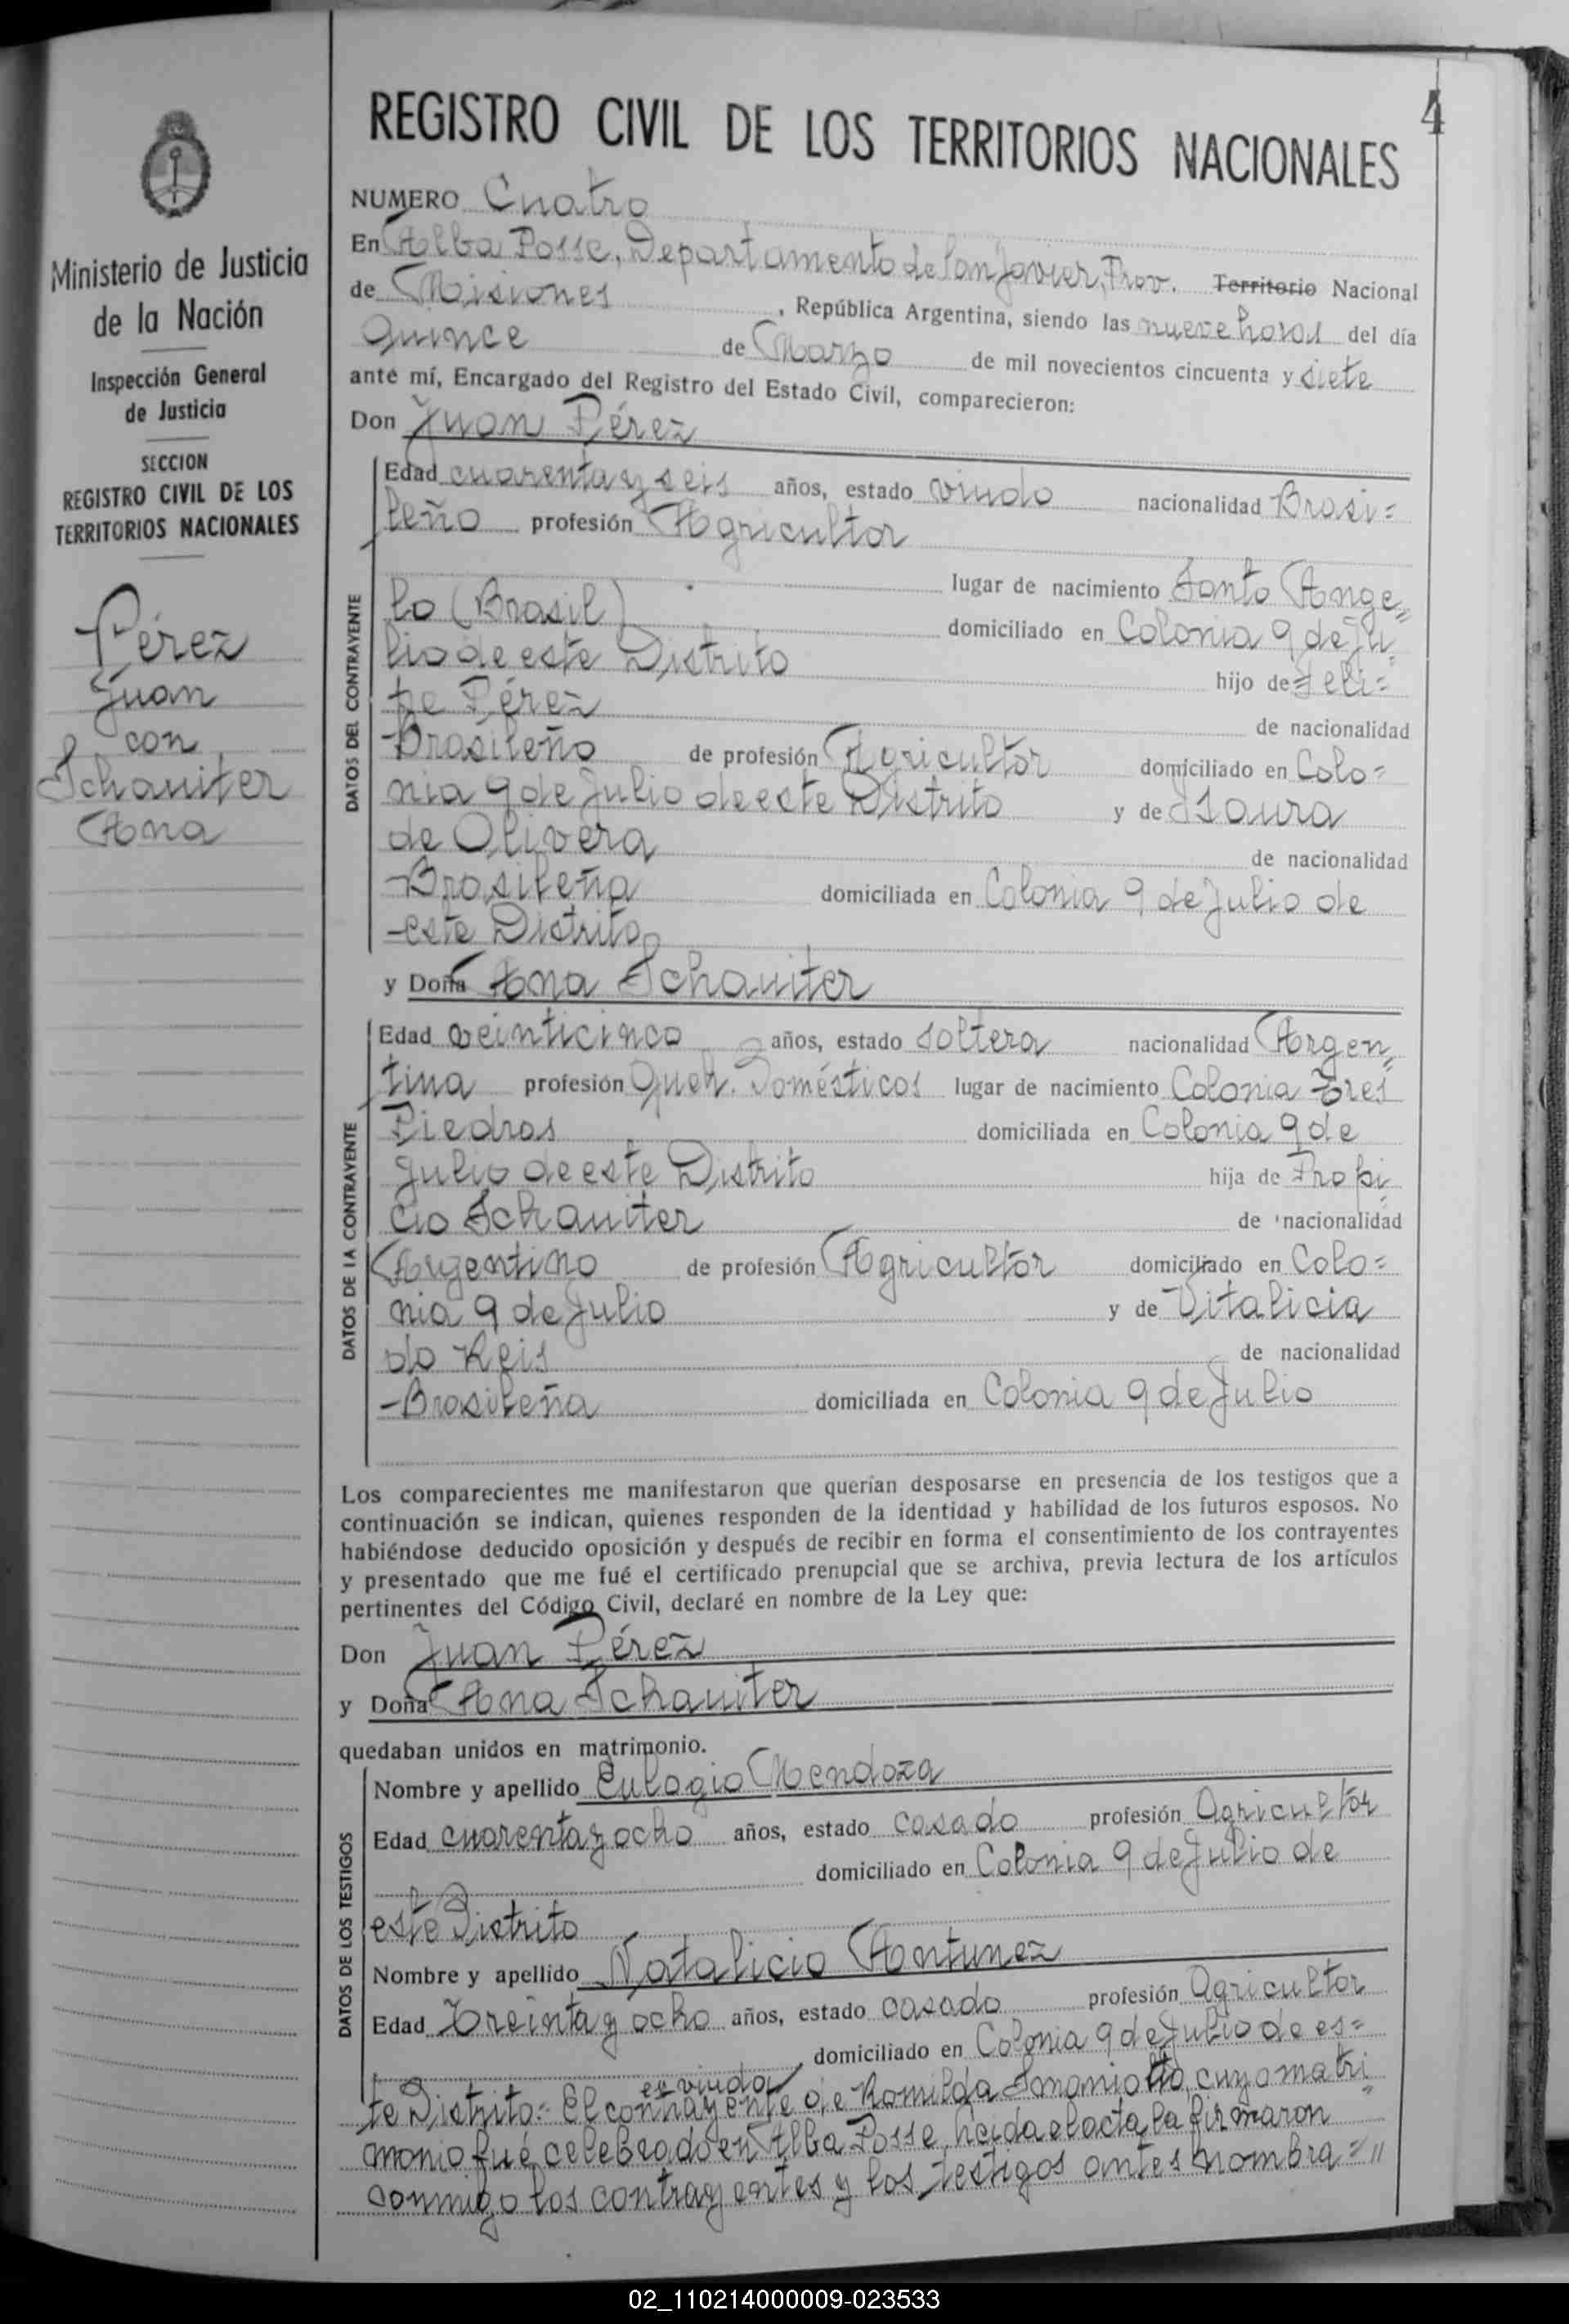 4
REGISTRO CIVIL DE LOS TERRITORIOS NACIONALES
Ministerio de Justicia
de la Nación
Inspección General
de Justicia
SECCION
REGISTRO CIVIL DE LOS
TERRITORIOS NACIONALES
Pérez
Juan
con
Schaniter
Ana
NUMERO Cuatro
En Alba Posse, Departamento de San Javier, Prov. Territorio Nacional
de Misiones, República Argentina, siendo las nueve horas del día
Quince de Marzo de mil novecientos cincuenta y siete
ante mí, Encargado del Registro del Estado Civil, comparecieron:
Don Juan Pérez
DATOS DEL CONTRAYENTE
Edad cuarenta y seis años, estado viudo nacionalidad Brasi=
leño profesión Agricultor
lugar de nacimiento Santo Ange=
lo (Brasil) domiciliado en Colonia 9 de Ju=
lio de este Distrito hijo de Feli=
pe Pérez de nacionalidad
Brasileño de profesión Agricultor domiciliado en Colo=
nia 9 de Julio de este Distrito y de Isaura
de Olivera de nacionalidad
-Brasileña domiciliada en Colonia 9 de Julio de
-este Distrito
y Doña Ana Schaniter
DATOS DE LA CONTRAYENTE
Edad veinticinco años, estado soltera nacionalidad Argen=
tina profesión Queh. Domésticos lugar de nacimiento Colonia Tres
Piedras domiciliada en Colonia 9 de
Julio de este Distrito hija de Propi=
cio Schaniter de nacionalidad
Argentino de profesión Agricultor domiciliado en Colo=
nia 9 de Julio y de Vitalicia
do Reis de nacionalidad
-Brasileña domiciliada en Colonia 9 de Julio
Los comparecientes me manifestaron que querían desposarse en presencia de los testigos que a
continuación se indican, quienes responden de la identidad y habilidad de los futuros esposos. No
habiéndose deducido oposición y después de recibir en forma el consentimiento de los contrayentes
y presentado que me fué el certificado prenupcial que se archiva, previa lectura de los artículos
pertinentes del Código Civil, declaré en nombre de la Ley que:
Don Juan Pérez
y Doña Ana Schaniter
quedaban unidos en matrimonio.
DATOS DE LOS TESTIGOS
Nombre y apellido Eulogio Mendoza
Edad cuarenta y ocho años, estado casado profesión Agricultor
domiciliado en Colonia 9 de Julio de
este Distrito
Nombre y apellido Natalicio Antunez
Edad treinta y ocho años, estado casado profesión Agricultor
domiciliado en Colonia 9 de Julio de es=
es viudo
te Distrito.= El contrayente de Romilda cuyo matri=
monio fué celebrado en Alba Posse. Leida el acta, la firmaron
conmigo los contrayentes y los testigos antes nombra="
02_110214000009-023533